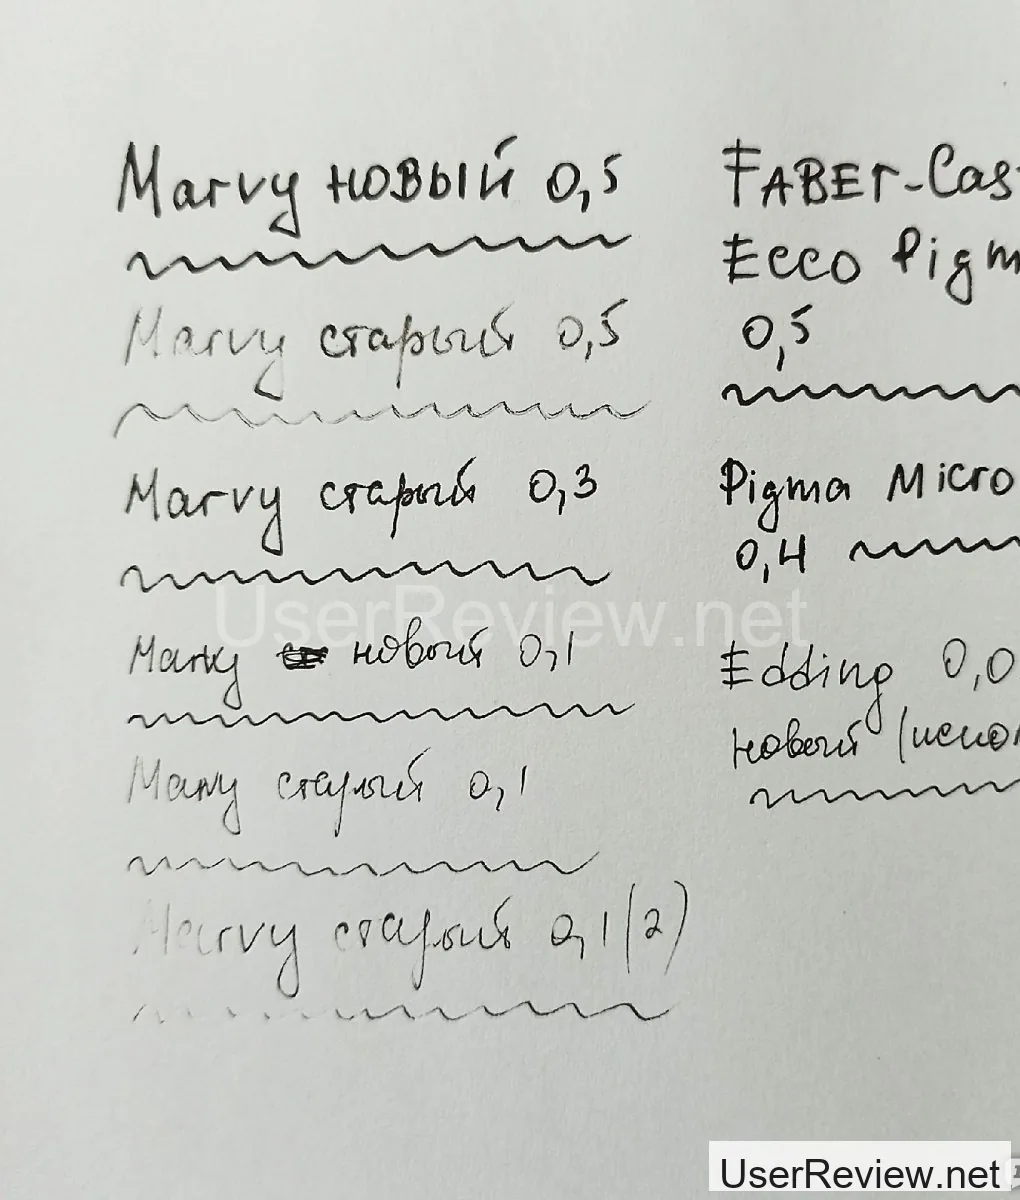 Marvy новый 0,5
Marvy старый 0,5
Marvy старый 0,3
Marvy новый 0,1
Marvy старый 0,1
Marvy старый 0,1 (2)
FABER-Cas
Ecco Pigm
0,5
Pigma Micro
0,4
Edding 0,0
новый (испол
UserReview.net
UserReview.net